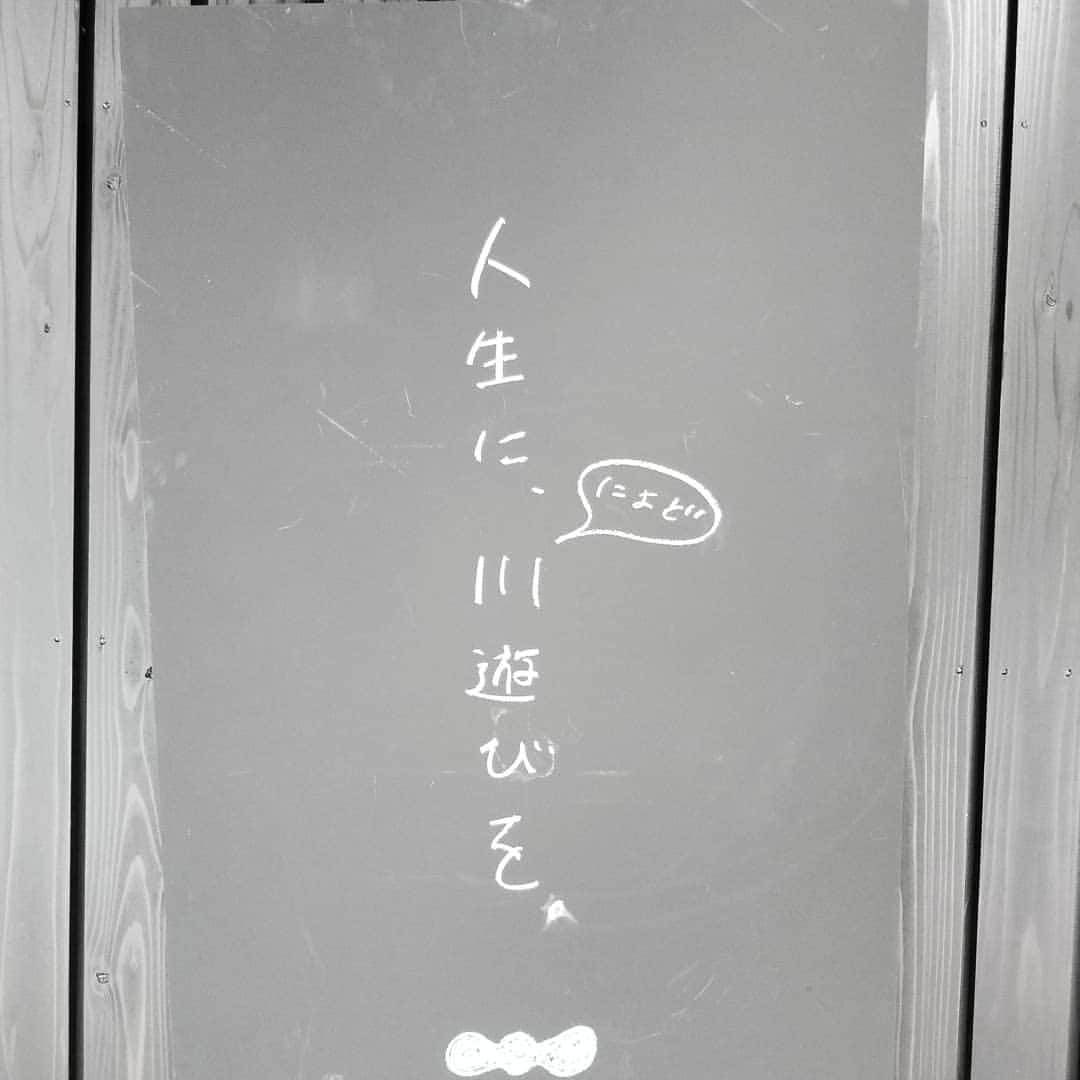 人生に、川遊びを。
によど